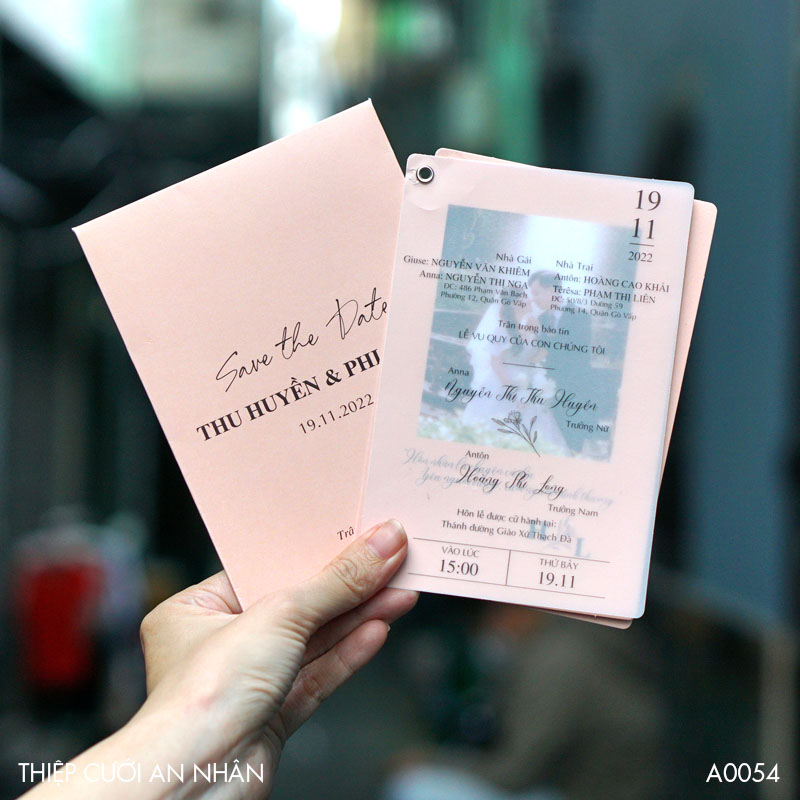 Save the Date
THU HUYỀN & PHI
19.11.2022
Trâ
19
11
2022
Nhà Gái
Giuse: NGUYỄN VĂN KHIÊM
Anna: NGUYỄN THỊ NGA
ĐC: 486 Phạm Văn Bạch
Phường 12, Quận Gò Vấp
Nhà Trai
Antôn: HOÀNG CAO KHẢI
Têrêsa: PHẠM THỊ LIÊN
ĐC: 50/8/3 Đường 59
Phường 14, Quận Gò Vấp
Trân trọng báo tin
LỄ VU QUY CỦA CON CHÚNG TÔI
Anna
Nguyễn Thị Thu Huyền
Trưởng Nữ
Antôn
Hoàng Phi Long
Trưởng Nam
Hôn lễ được cử hành tại:
Thánh đường Giáo Xứ Thạch Đà
VÀO LÚC
15:00
THỨ BẢY
19.11
THIỆP CƯỚI AN NHÂN
A0054